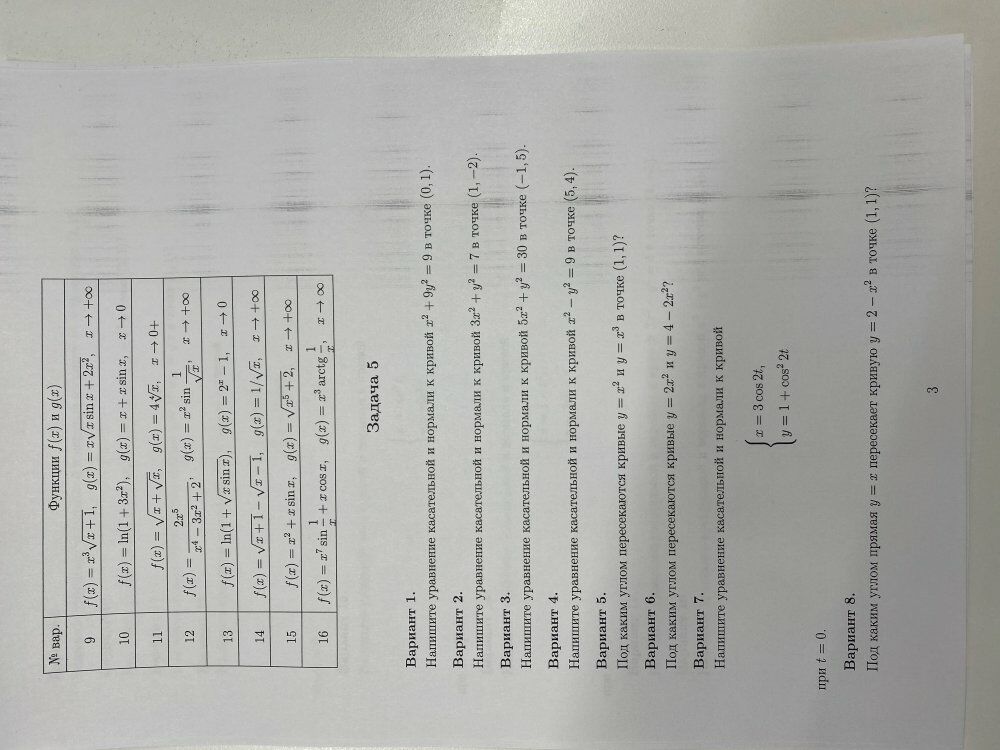 № вар. Функции f(x) и g(x)
9 f(x) = x³√(x + 1), g(x) = x√(x sin x + 2x²), x → +∞
10 f(x) = ln(1 + 3x²), g(x) = x + x sin x, x → 0
11 f(x) = √(x + √x), g(x) = 4∜x, x → 0+
12 f(x) = 2x⁵/(x⁴ − 3x² + 2), g(x) = x² sin 1/√x, x → +∞
13 f(x) = ln(1 + √(x sin x)), g(x) = 2ˣ − 1, x → 0
14 f(x) = √(x + 1) − √(x − 1), g(x) = 1/√x, x → +∞
15 f(x) = x² + x sin x, g(x) = √(x⁵ + 2), x → +∞
16 f(x) = x⁷ sin 1/x + x cos x, g(x) = x³ arctg 1/x, x → ∞
Задача 5
Вариант 1.
Напишите уравнение касательной и нормали к кривой x² + 9y² = 9 в точке (0, 1).
Вариант 2.
Напишите уравнение касательной и нормали к кривой 3x² + y² = 7 в точке (1, −2).
Вариант 3.
Напишите уравнение касательной и нормали к кривой 5x² + y² = 30 в точке (−1, 5).
Вариант 4.
Напишите уравнение касательной и нормали к кривой x² − y² = 9 в точке (5, 4).
Вариант 5.
Под каким углом пересекаются кривые y = x² и y = x³ в точке (1, 1)?
Вариант 6.
Под каким углом пересекаются кривые y = 2x² и y = 4 − 2x²?
Вариант 7.
Напишите уравнение касательной и нормали к кривой
{ x = 3 cos 2t,
y = 1 + cos² 2t
при t = 0.
Вариант 8.
Под каким углом прямая y = x пересекает кривую y = 2 − x² в точке (1, 1)?
3